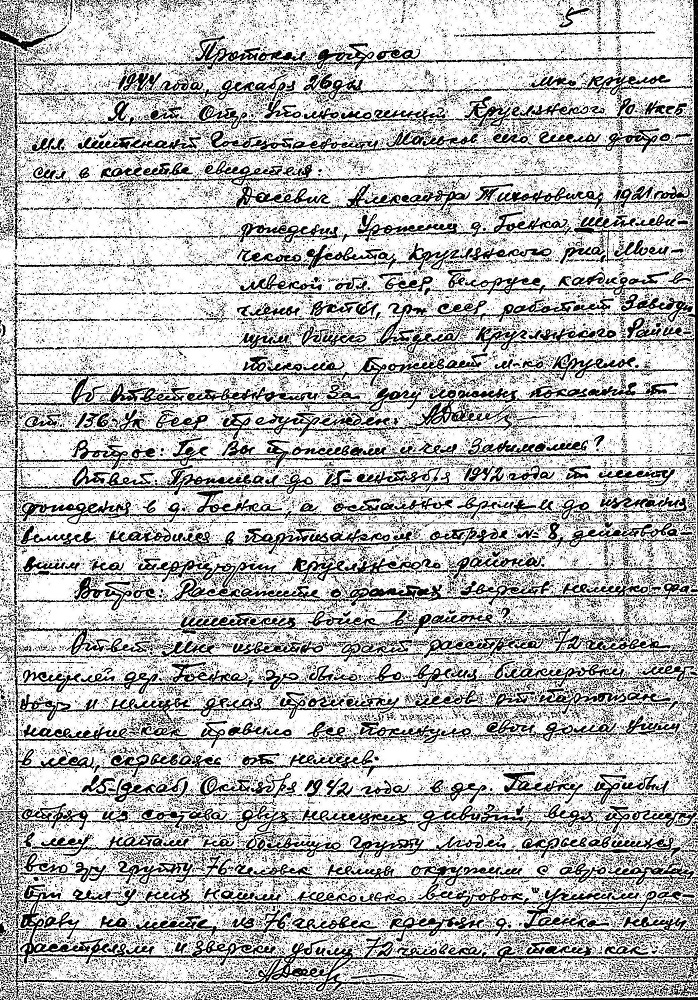 5
Протокол допроса
1944 года, декабря 26 дня м-ко Круглое
Я, ст. Опер. Уполномоченный Круглянского РО НКГБ
мл. лейтенант Госбезопасности Мальков сего числа допро-
сил в качестве свидетеля:
Дасевич Александра Тихоновича, 1921 года
рождения, Уроженец д. Гоенка, Шепелеви-
ческого с/совета, Круглянского р-на, Моги-
левской обл. БССР, белорусс, кандидат в
члены ВКП(б), гр-н СССР, работает Заведую
щим Общего Отдела Круглянского Райис-
полкома, проживает м-ко Круглое.
Об ответственности за дачу ложных показаний по
ст. 136 УК БССР предупрежден:
Вопрос: Где Вы проживали и чем занимались?
Ответ: Проживал до 15 сентября 1942 года по месту
рождения в д. Гоенка, а остальное время и до изгнания
немцев находился в партизанском отряде № 8, действова-
вшим на территории Круглянского района.
Вопрос: Расскажите о фактах зверств немецко-фа-
шистских войск в районе?
Ответ: Мне известно факт расстрела 72 человека
жителей дер. Гоенка, это было во время блакировки мест
ность и немцы делая прочистку лесов от партизан,
население как правило все покинуло свои дома ушли
в леса, скрываясь от немцев;
25-(декаб) Октября 1942 года в дер. Гаенку прибыл
отряд из состава двух немецких дивизий, ведя прочистку
в лесу напали на большую группу людей скрывавшихся,
всю эту группу 76 человек немцы окружили с автоматами
при чем у них нашли несколько винтовок, учинили рас-
праву на месте, из 76 человек крестьян д. Гаенка немцы
расстреляли и зверски убили 72 человека, а таких как: